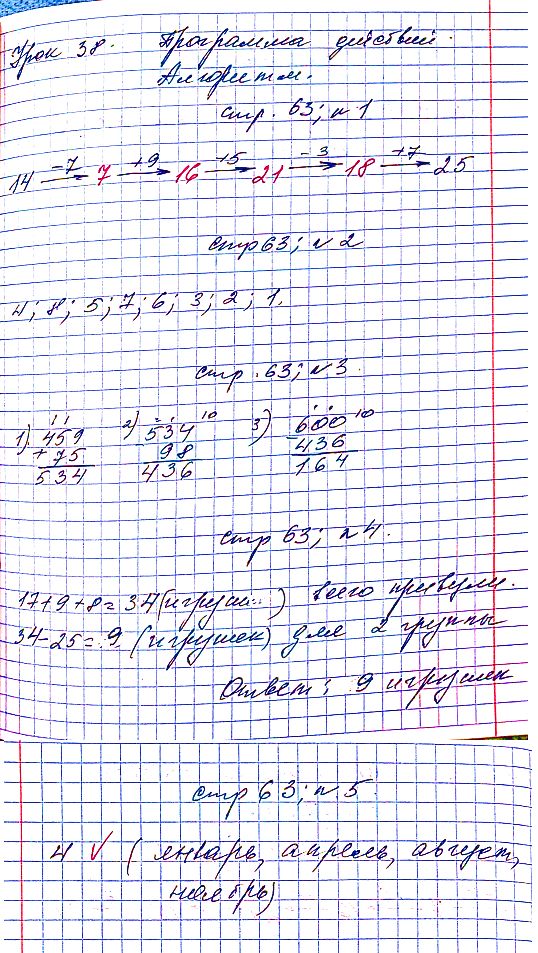 Урок 38. Программа действий.
Алгоритм.
стр. 63; n 1
14 –7→ 7 +9→ 16 +5→ 21 –3→ 18 +7→ 25
стр 63; n 2
4; 8; 5; 7; 6; 3; 2; 1.
стр. 63; n 3
1) 459 + 75 = 534
2) 534 98 436
3) 600 – 436 164
стр 63; n 4.
17+9+8=34 (игруш...) всего
34–25=9. (игрушек) для 2 группы
Ответ: 9 игрушек
стр 63; n 5
4 ✓ (январь, апрель, август,
ноябрь)